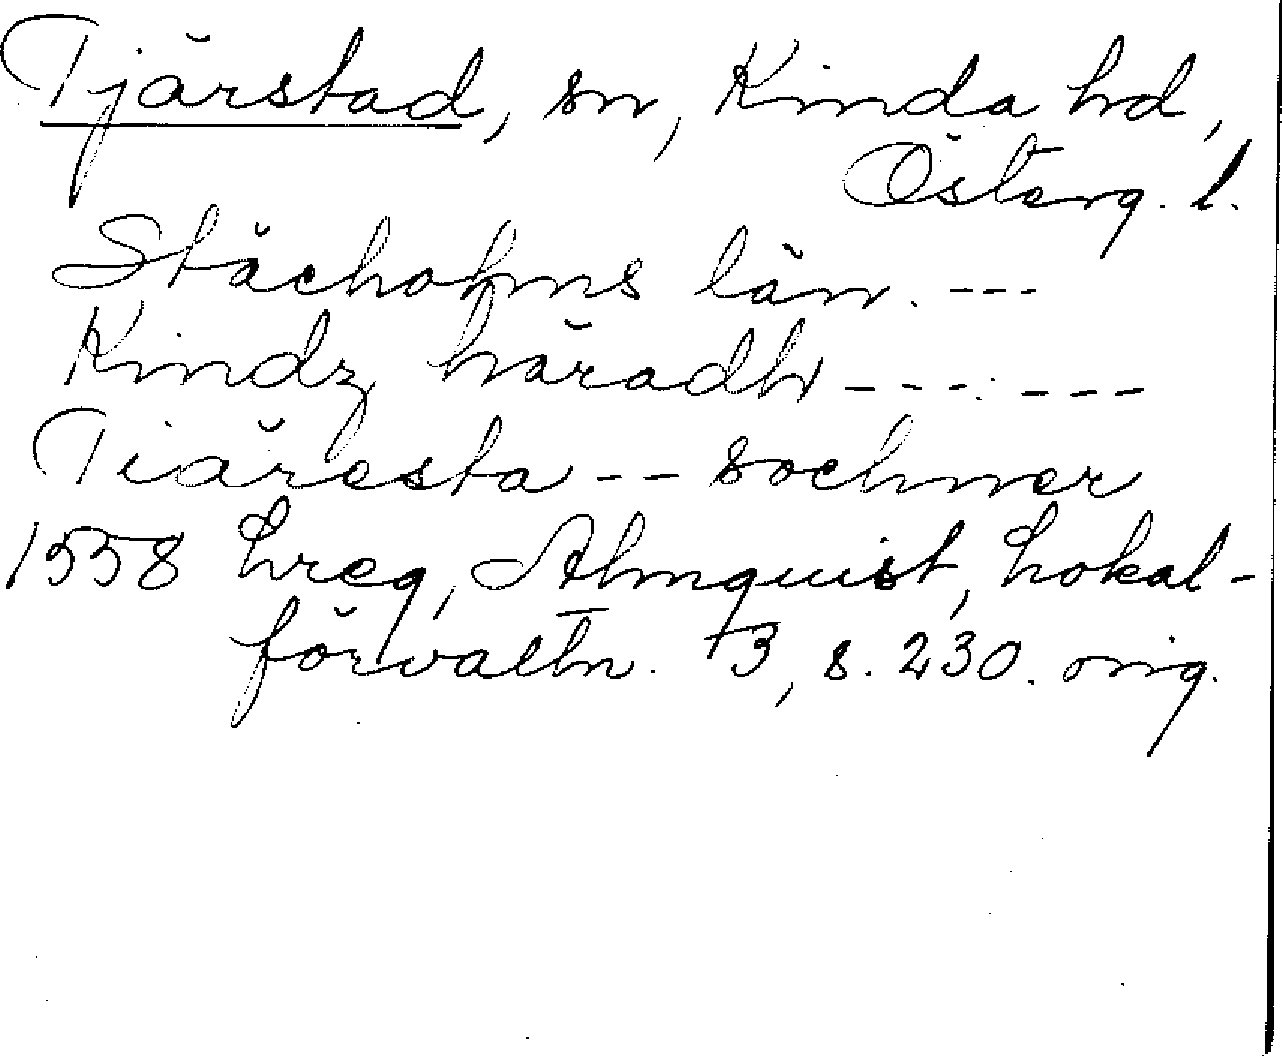 Tjärstad, sn, Kinda hd,
Österg. l.
Stächolms län. ---
Kindz häradh ---. ---
Tiäresta -- sochner
1558 Lreg, Almquist, Lokal-
förvaltn. 3, s. 230. orig.